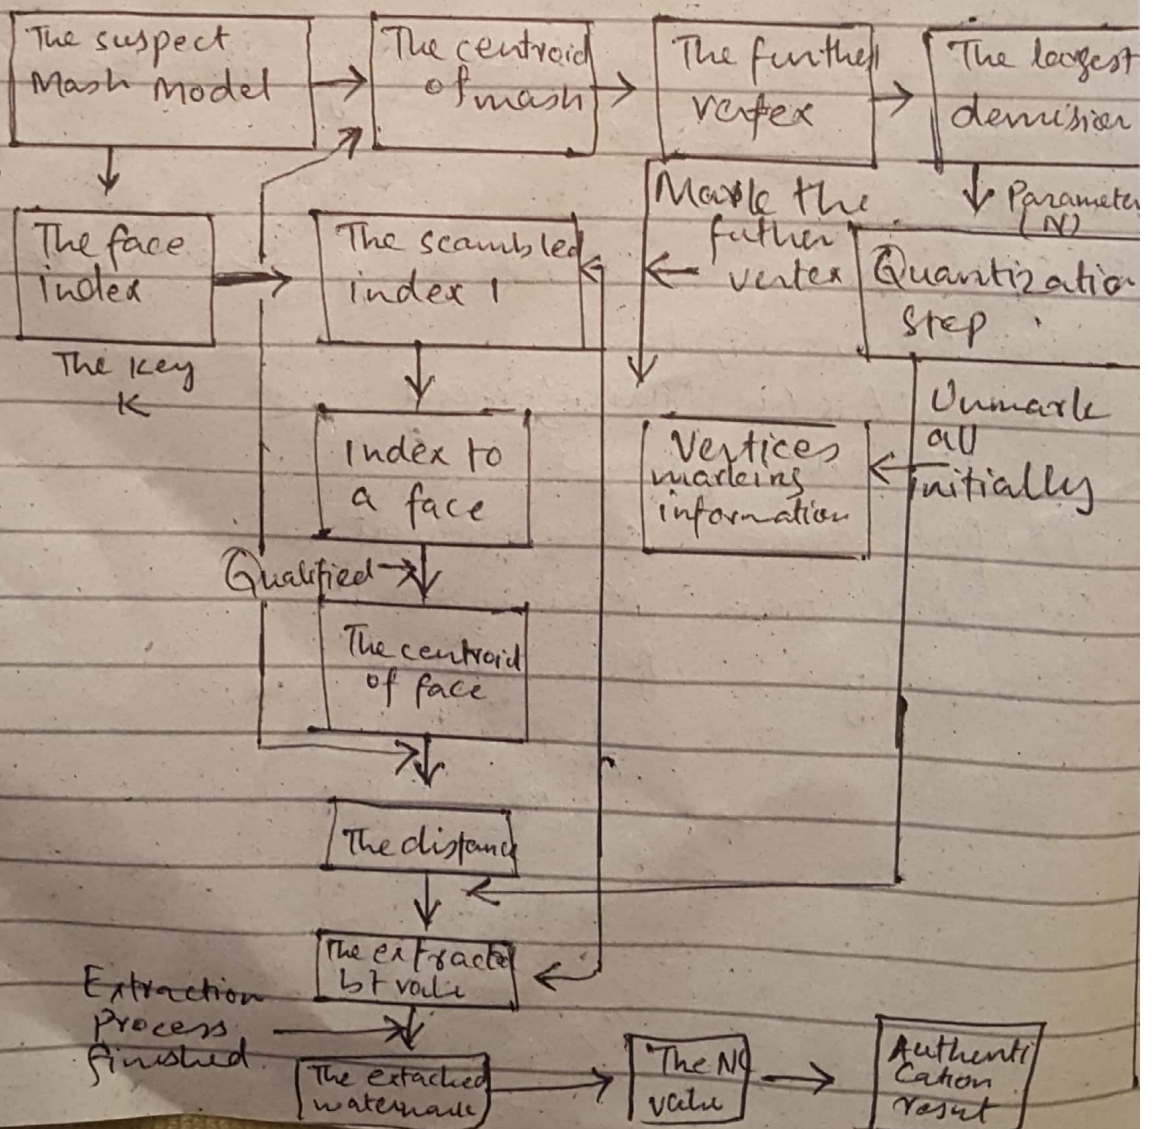 The suspect
Mash Model
The centroid
of mash
The further
vertex
The largest
demision
The face
index
The scambled
index 1
Mark the
futher
vertex
Parameter
(N)
Quantizatio
step
The key
K
Index to
a face
Vertices
marking
information
Unmark
all
initially
Qualified
The centroid
of face
The distanc
The extracted
bt value
Extraction
Process
finished
The extached
watermark
The NC
value
Authenti
cation
result